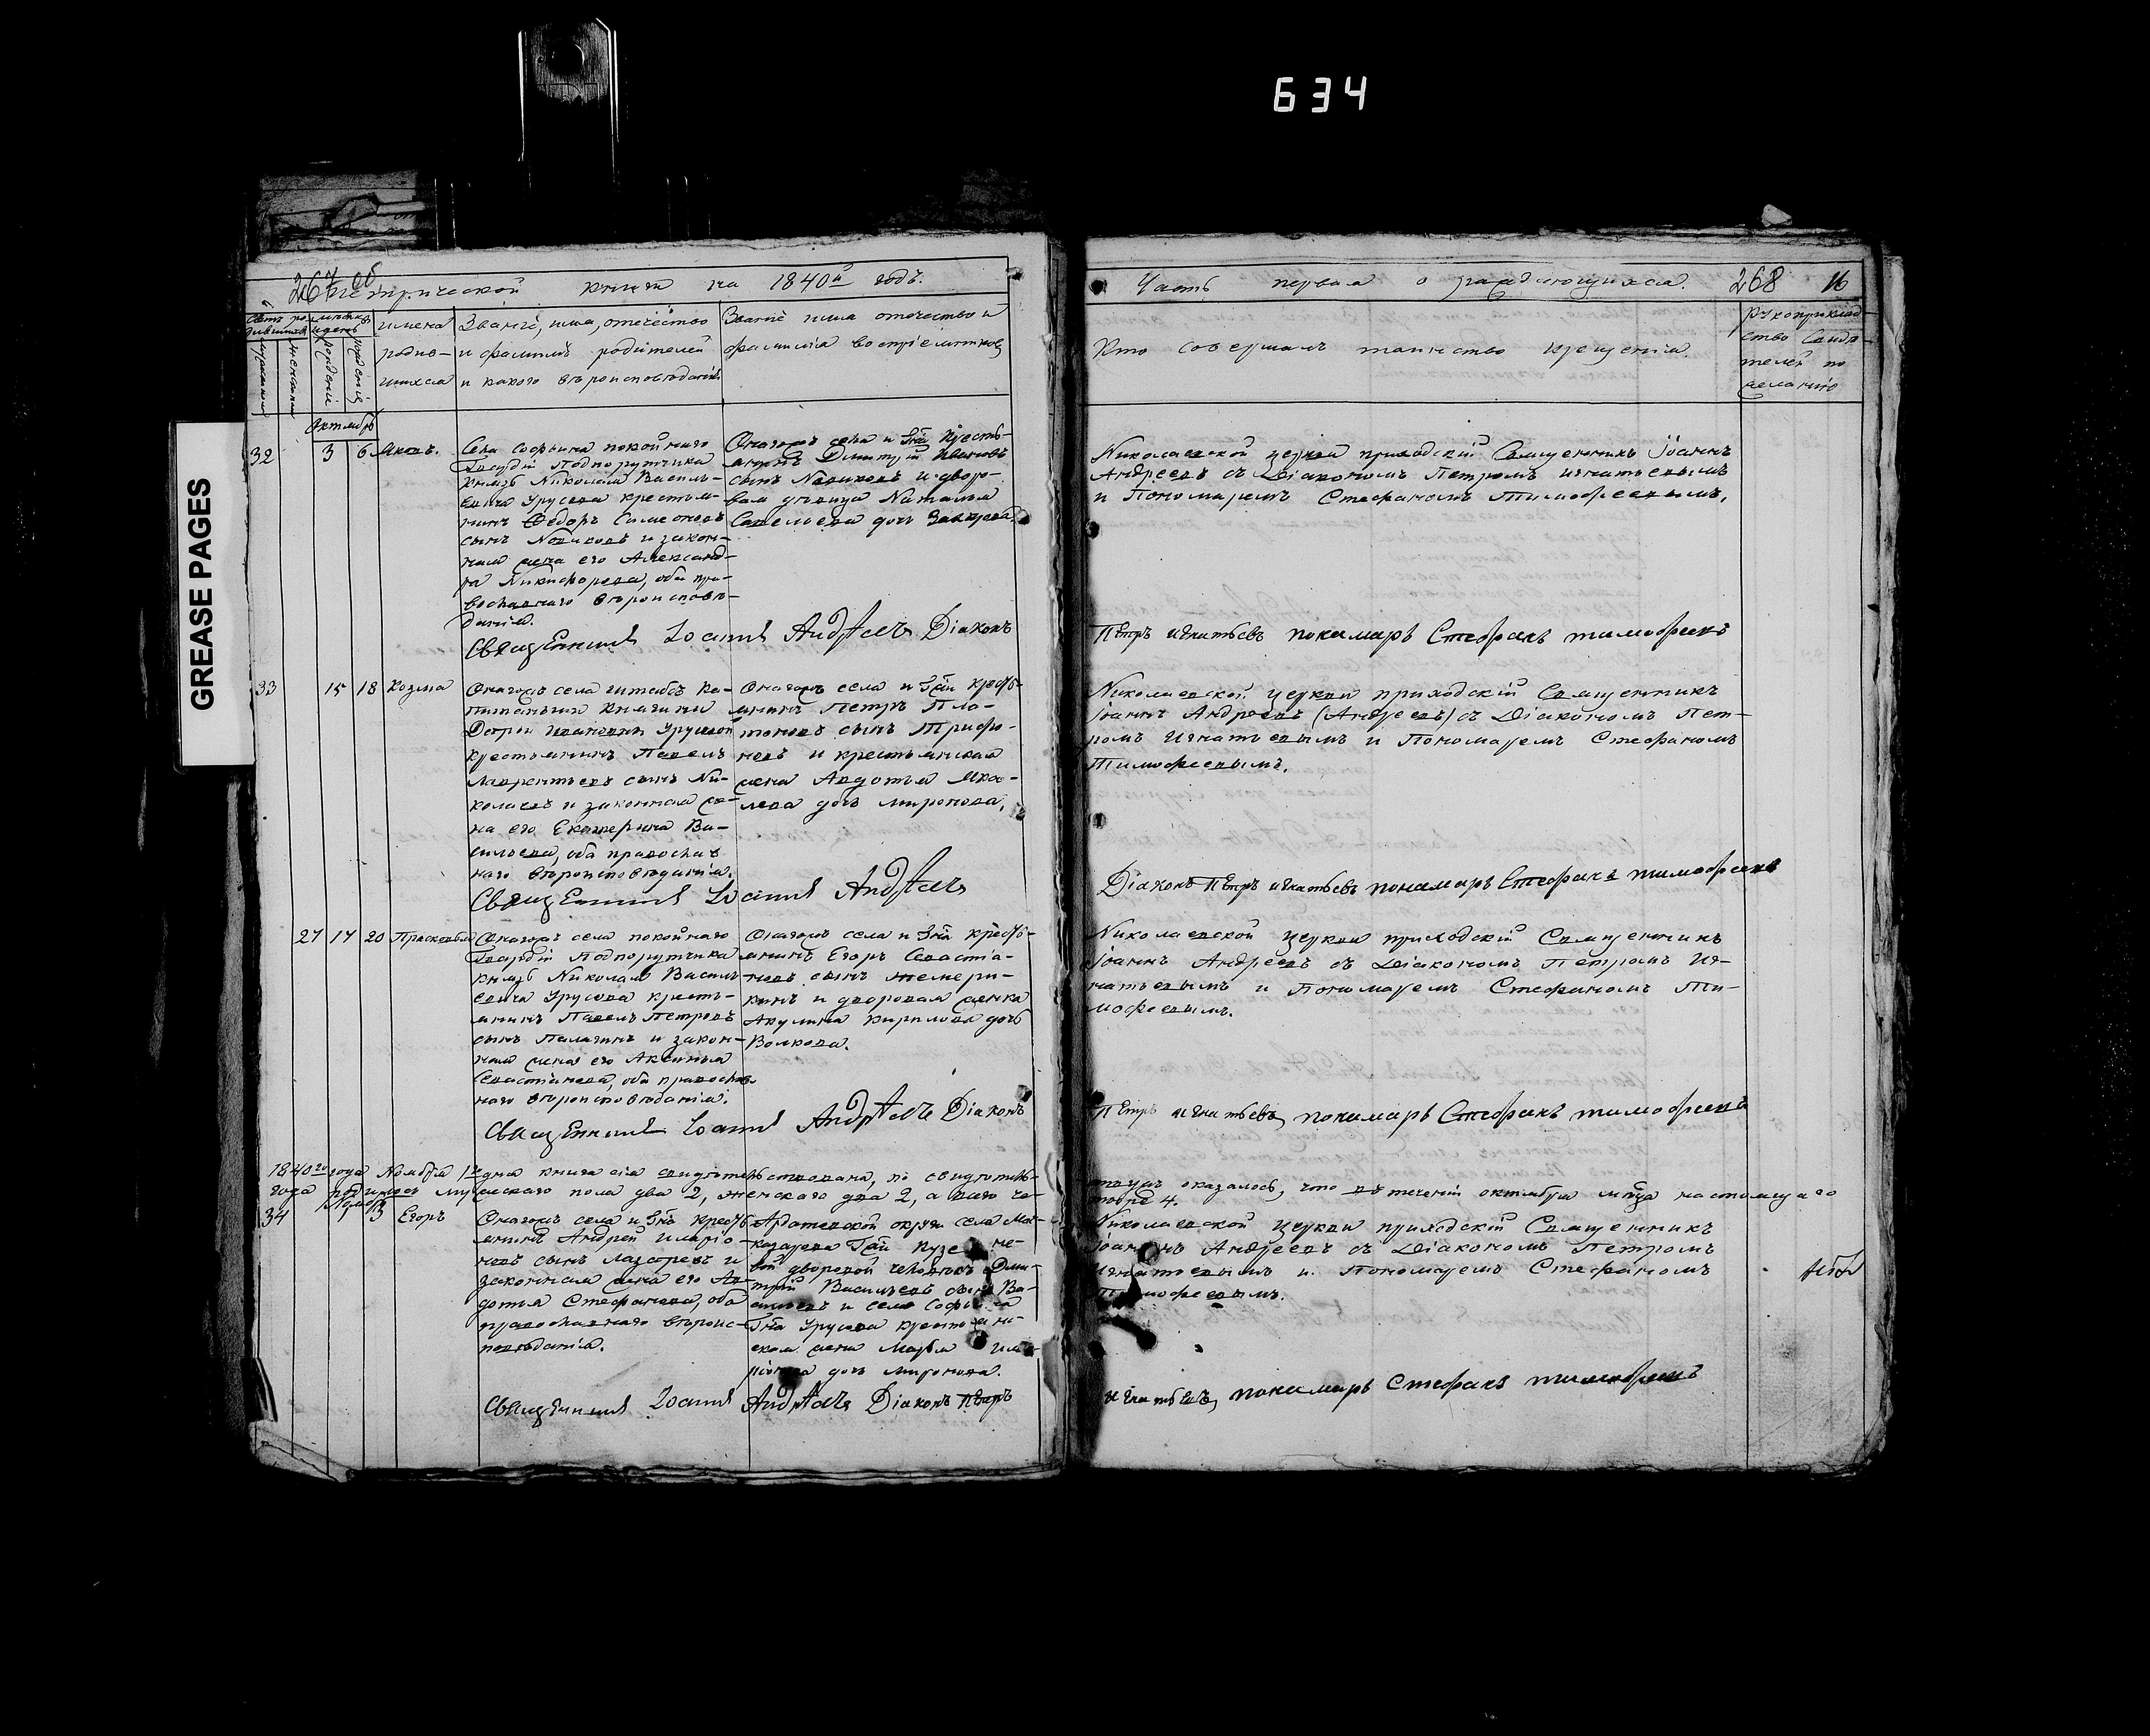 634
GREASE PAGES
267 об
Метрической книги на 1840й годъ.
Счетъ родившихся
Мѣсяцъ и день
мужеска
женска
рожденія
крещенія
Имена родив-
шихся
Званіе, имя, отечество
и фамилія родителей
и какого вѣроисповѣданія
Званіе имя отечество и
фамилія воспріемниковъ
Октябрь
32
3
6
Яковъ.
Села Софьина покойнаго
Гвардіи Подпорутчика
Князь Николая Василь-
евича Урусова крестья-
нинъ Ѳедоръ Симеоновъ
сынъ Новиковъ и закон-
ная жена его Александ-
ра Никифорова, оба пра-
вославнаго вѣроисповѣ-
данія.
Онагожъ села и Гна кресть-
янинъ Дмитрій Ивановъ
сынъ Новиковъ и дворо-
вая дѣвица Наталья
Савельева дочь
Священникъ Іоаннъ Андреевъ Діаконъ
33
15
18
Козма
Онагожъ села штабсъ Ка-
питанши Княгини
Ивановны Урусовой
крестьянинъ Павелъ
Лаврентьевъ сынъ Ни-
колаевъ и законная же-
на его Екатерина Ва-
сильева, оба православ
наго вѣроисповѣданія.
Онагожъ села и Гжи кресть-
янинъ Петръ Пла-
тоновъ сынъ Трифо-
новъ и крестьянская
жена Авдотья Яков-
лева дочь Миронова.
Священникъ Іоаннъ Андреевъ
27
17
20
Прасковья
Онагожъ села покойнаго
Гвардіи Подпорутчика
князь Николая Василь-
евича Урусова кресть-
янинъ Павелъ Петровъ
сынъ Палагинъ и закон-
ная жена его Аксинья
Севастіанова, оба православ-
наго вѣроисповѣданія.
Онагожъ села и Гна кресть-
янинъ Егоръ Севастіа-
новъ сынъ Темери-
кинъ и дворовая женка
Акулина Кирилова дочь
Волкова.
Священникъ Іоаннъ Андреевъ Діаконъ
1840го года Ноября 1го дня книга сія свидѣтельствована, по свидѣтель-
года родилось мужескаго пола два 2, женскаго два 2, а всего че-
Ноябрь
34
3
Егоръ
Онагожъ села и Гна кресть-
янинъ Андрей Иларіо-
новъ сынъ Лазаревъ и
законная жена его Ав-
дотья Стефанова, оба
православнаго вѣроис-
повѣданія.
Ардатовской округи села
Гжи
вой дворовой человѣкъ Дми-
трій Васильевъ сынъ Ва-
сильевъ и села Софьина
Гна Урусова крестьян-
ская жена Марѳа
дочь Миронова.
Священникъ Іоаннъ Андреевъ Діаконъ Петръ
Часть первая о раждающихся.
268
16
Кто совершалъ таинство крещенія.
Рукоприклад-
ство Свидѣ-
телей по
желанію
Николаевской церкви приходскій Священникъ Іоаннъ
Андреевъ съ Діакономъ Петромъ Игнатьевымъ
и Пономаремъ Стефаномъ Тимофеевымъ.
Петръ Игнатьевъ пономарь Стефанъ Тимофеевъ
Николаевской церкви приходскій Священникъ
Іоаннъ Андроевъ (Андреевъ) съ Діакономъ Пет-
ромъ Игнатьевымъ и Пономаремъ Стефаномъ
Тимофеевымъ.
Діаконъ Петръ Игнатьевъ пономарь Стефанъ Тимофеевъ
Николаевской церкви приходскій Священникъ
Іоаннъ Андреевъ съ Діакономъ Петромъ Иг-
натьевымъ и Пономаремъ Стефаномъ Ти-
мофеевымъ.
Петръ Игнатьевъ пономарь Стефанъ Тимофеевъ
оказалось, что въ теченіи октября мца настоящаго
4.
Николаевской церкви приходскій Священникъ
Іоаннъ Андреевъ съ Діакономъ Петромъ
Игнатьевымъ и Пономаремъ Стефаномъ
Тимофеевымъ.
Игнатьевъ пономарь Стефанъ Тимофеевъ